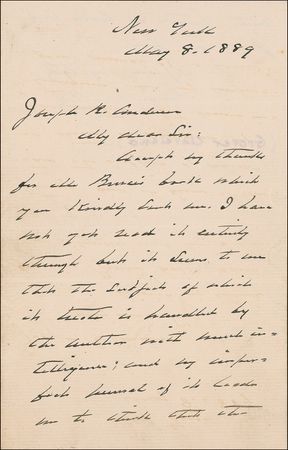 New York
May 8. 1889
Joseph H.
My dear Sir:
Accept my thanks
for the book which
you kindly sent me. I have
not yet read it entirely
through but it seems to me
that the subject of which
it treats is handled by
the author with much in-
telligence; and my imper-
fect perusal of it leads
me to think that the